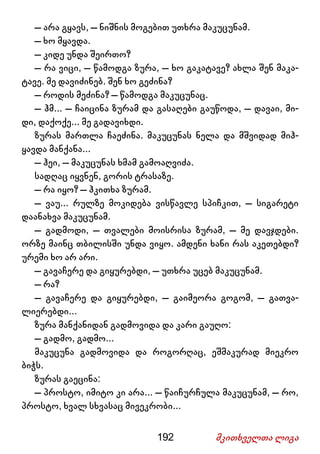 — არა გყავს, — ნიშნის მოგებით უთხრა მაკუცუნამ.
— ხო მყავდა.
— კიდე უნდა შეირთო?
— რა ვიცი, — წამოდგა ზურა, — ხო გაკატავე? ახლა შენ მაკა-
ტავე. მე დავიძინებ. შენ ხო გეძინა?
— როდის მეძინა? — წამოდგა მაკუცუნაც.
— ჰმ... — ჩაიცინა ზურამ და გასაღები გაუწოდა, — დავაი, მი-
დი, დაქოქე... მე გადავიხდი.
ზურას მართლა ჩაეძინა. მაკუცუნას ნელა და მშვიდად მიჰ-
ყავდა მანქანა...
— ჰეი, — მაკუცუნას ხმამ გამოაღვიძა.
სადღაც იყვნენ, გორის ტრასაზე.
— რა იყო? — ჰკითხა ზურამ.
— ვაუ... რულზე მოკიდება ვისწავლე სპიჩკით, — სიგარეტი
დაანახვა მაკუცუნამ.
— გადმოდი, — თვალები მოისრისა ზურამ, — მე დავჯდები.
ორზე მაინც თბილისში უნდა ვიყო. ამდენი ხანი რას აკეთებდი?
ურემი ხო არ არი.
— გავაჩერე და გიყურებდი, — უთხრა უცებ მაკუცუნამ.
— რა?
— გავაჩერე და გიყურებდი, — გაიმეორა გოგომ, — გათვა-
ლიერებდი...
ზურა მანქანიდან გადმოვიდა და კარი გაუღო:
— გადმო, გადმო...
მაკუცუნა გადმოვიდა და როგორღაც, ეშმაკურად მიეკრო
ბიჭს.
ზურას გაეცინა:
— პროსტო, იმიტო კი არა... — წაიჩურჩულა მაკუცუნამ, — რო,
პროსტო, ხვალ სხვასაც მივეკრობი...
192 მკითხველთა ლიგა